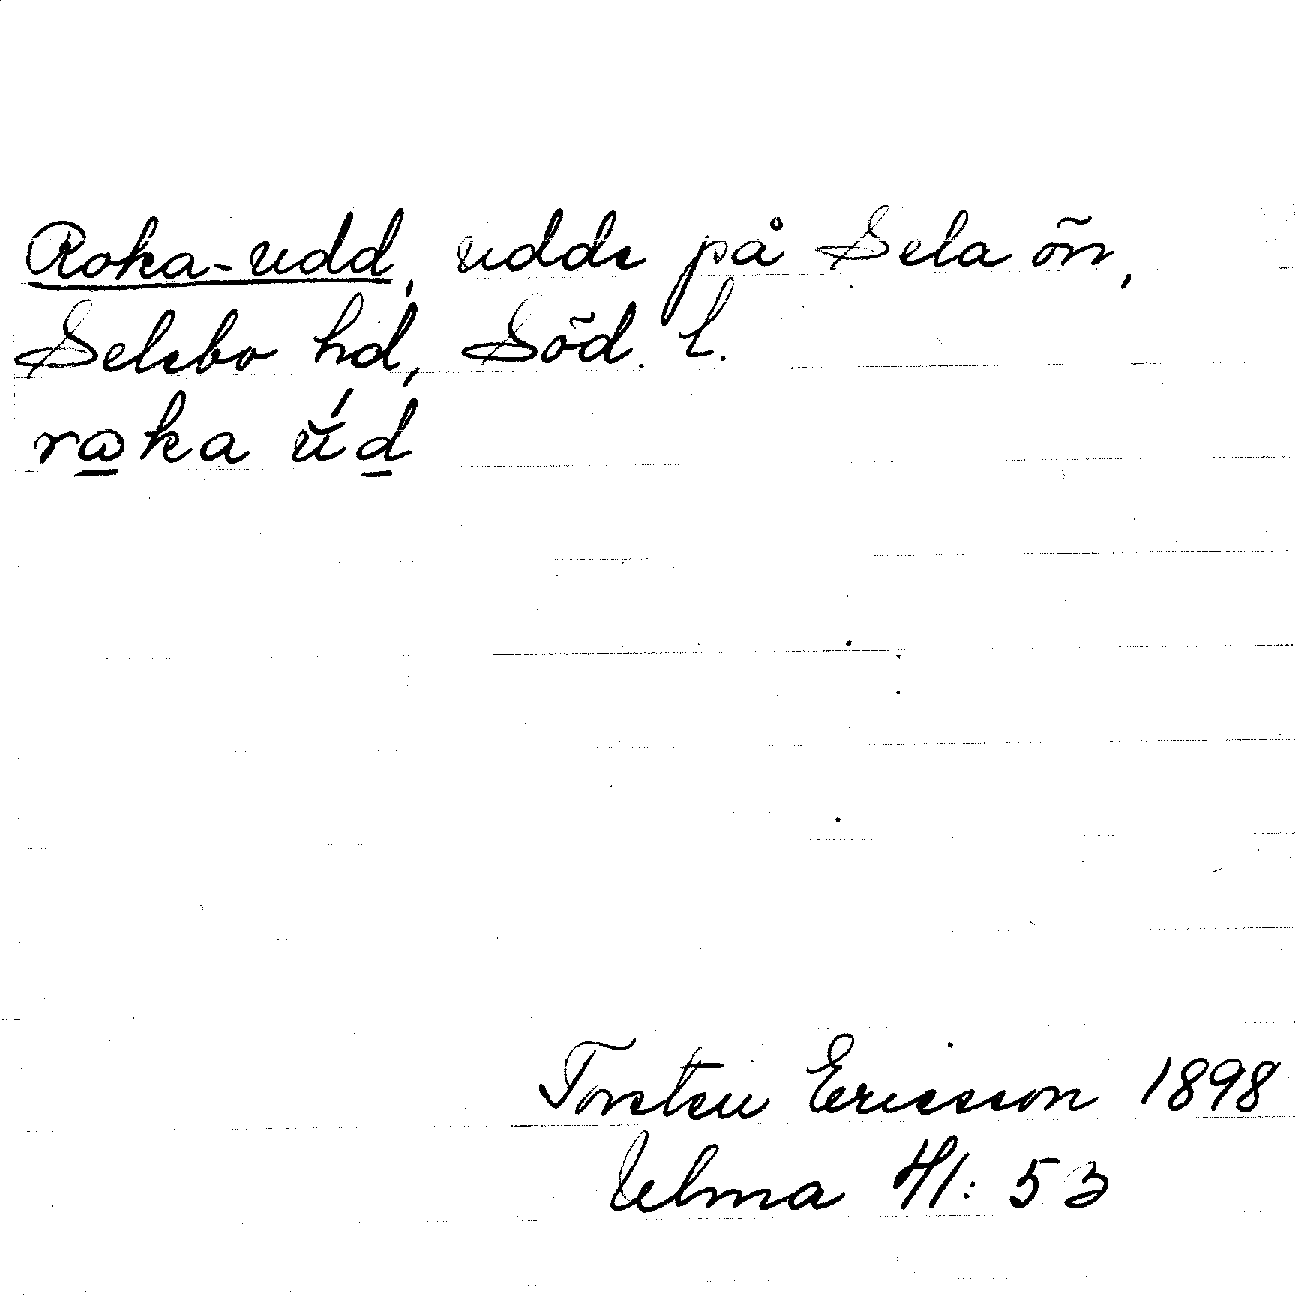 Roka-udd, udde på Sela ön,
Selebo hd, Söd. l.
raka úd
Torsten Ericsson 1898
Ulma 41:53